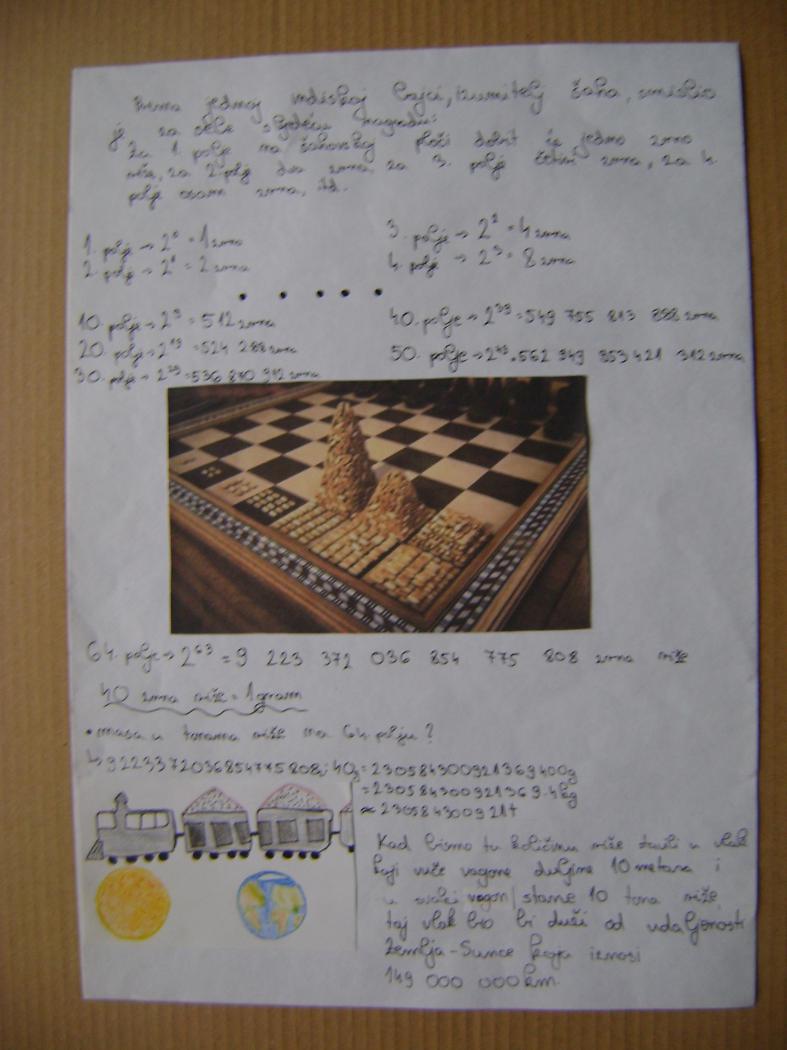 Prema jednoj indiskoj bajci, izumitelj šaha, smislio
je za sebe sljedeću nagradu:
Za 1. polje na šahovskoj ploči dobit će jedno zrno
riže, za 2. polje dva zrna, za 3. polje četiri zrna, za 4.
polje osam zrna, itd.
1. polje → 2⁰ = 1 zrno
3. polje → 2² = 4 zrna
2. polje → 2¹ = 2 zrna
4. polje → 2³ = 8 zrna
• • • • •
10. polje → 2⁹ = 512 zrna
40. polje → 2³⁹ = 549 755 813 888 zrna
20. polje → 2¹⁹ = 524 288 zrna
50. polje → 2⁴⁹ = 562 949 953 421 312 zrna
30. polje → 2²⁹ = 536 870 912 zrna
64. polje → 2⁶³ = 9 223 372 036 854 775 808 zrna riže
40 zrna riže = 1 gram
• masa u tonama riže na 64. polju?
↳ 9223372036854775808 : 40 = 230584300921369400g
= 230584300921369.4kg
≈ 230584300921t
Kad bismo tu količinu riže stavili u vlak
koji vuče vagone duljine 10 metara i
u svaki vagon stane 10 tona riže,
taj vlak bio bi duži od udaljenosti
Zemlja-Sunce koja iznosi
149 000 000 km.